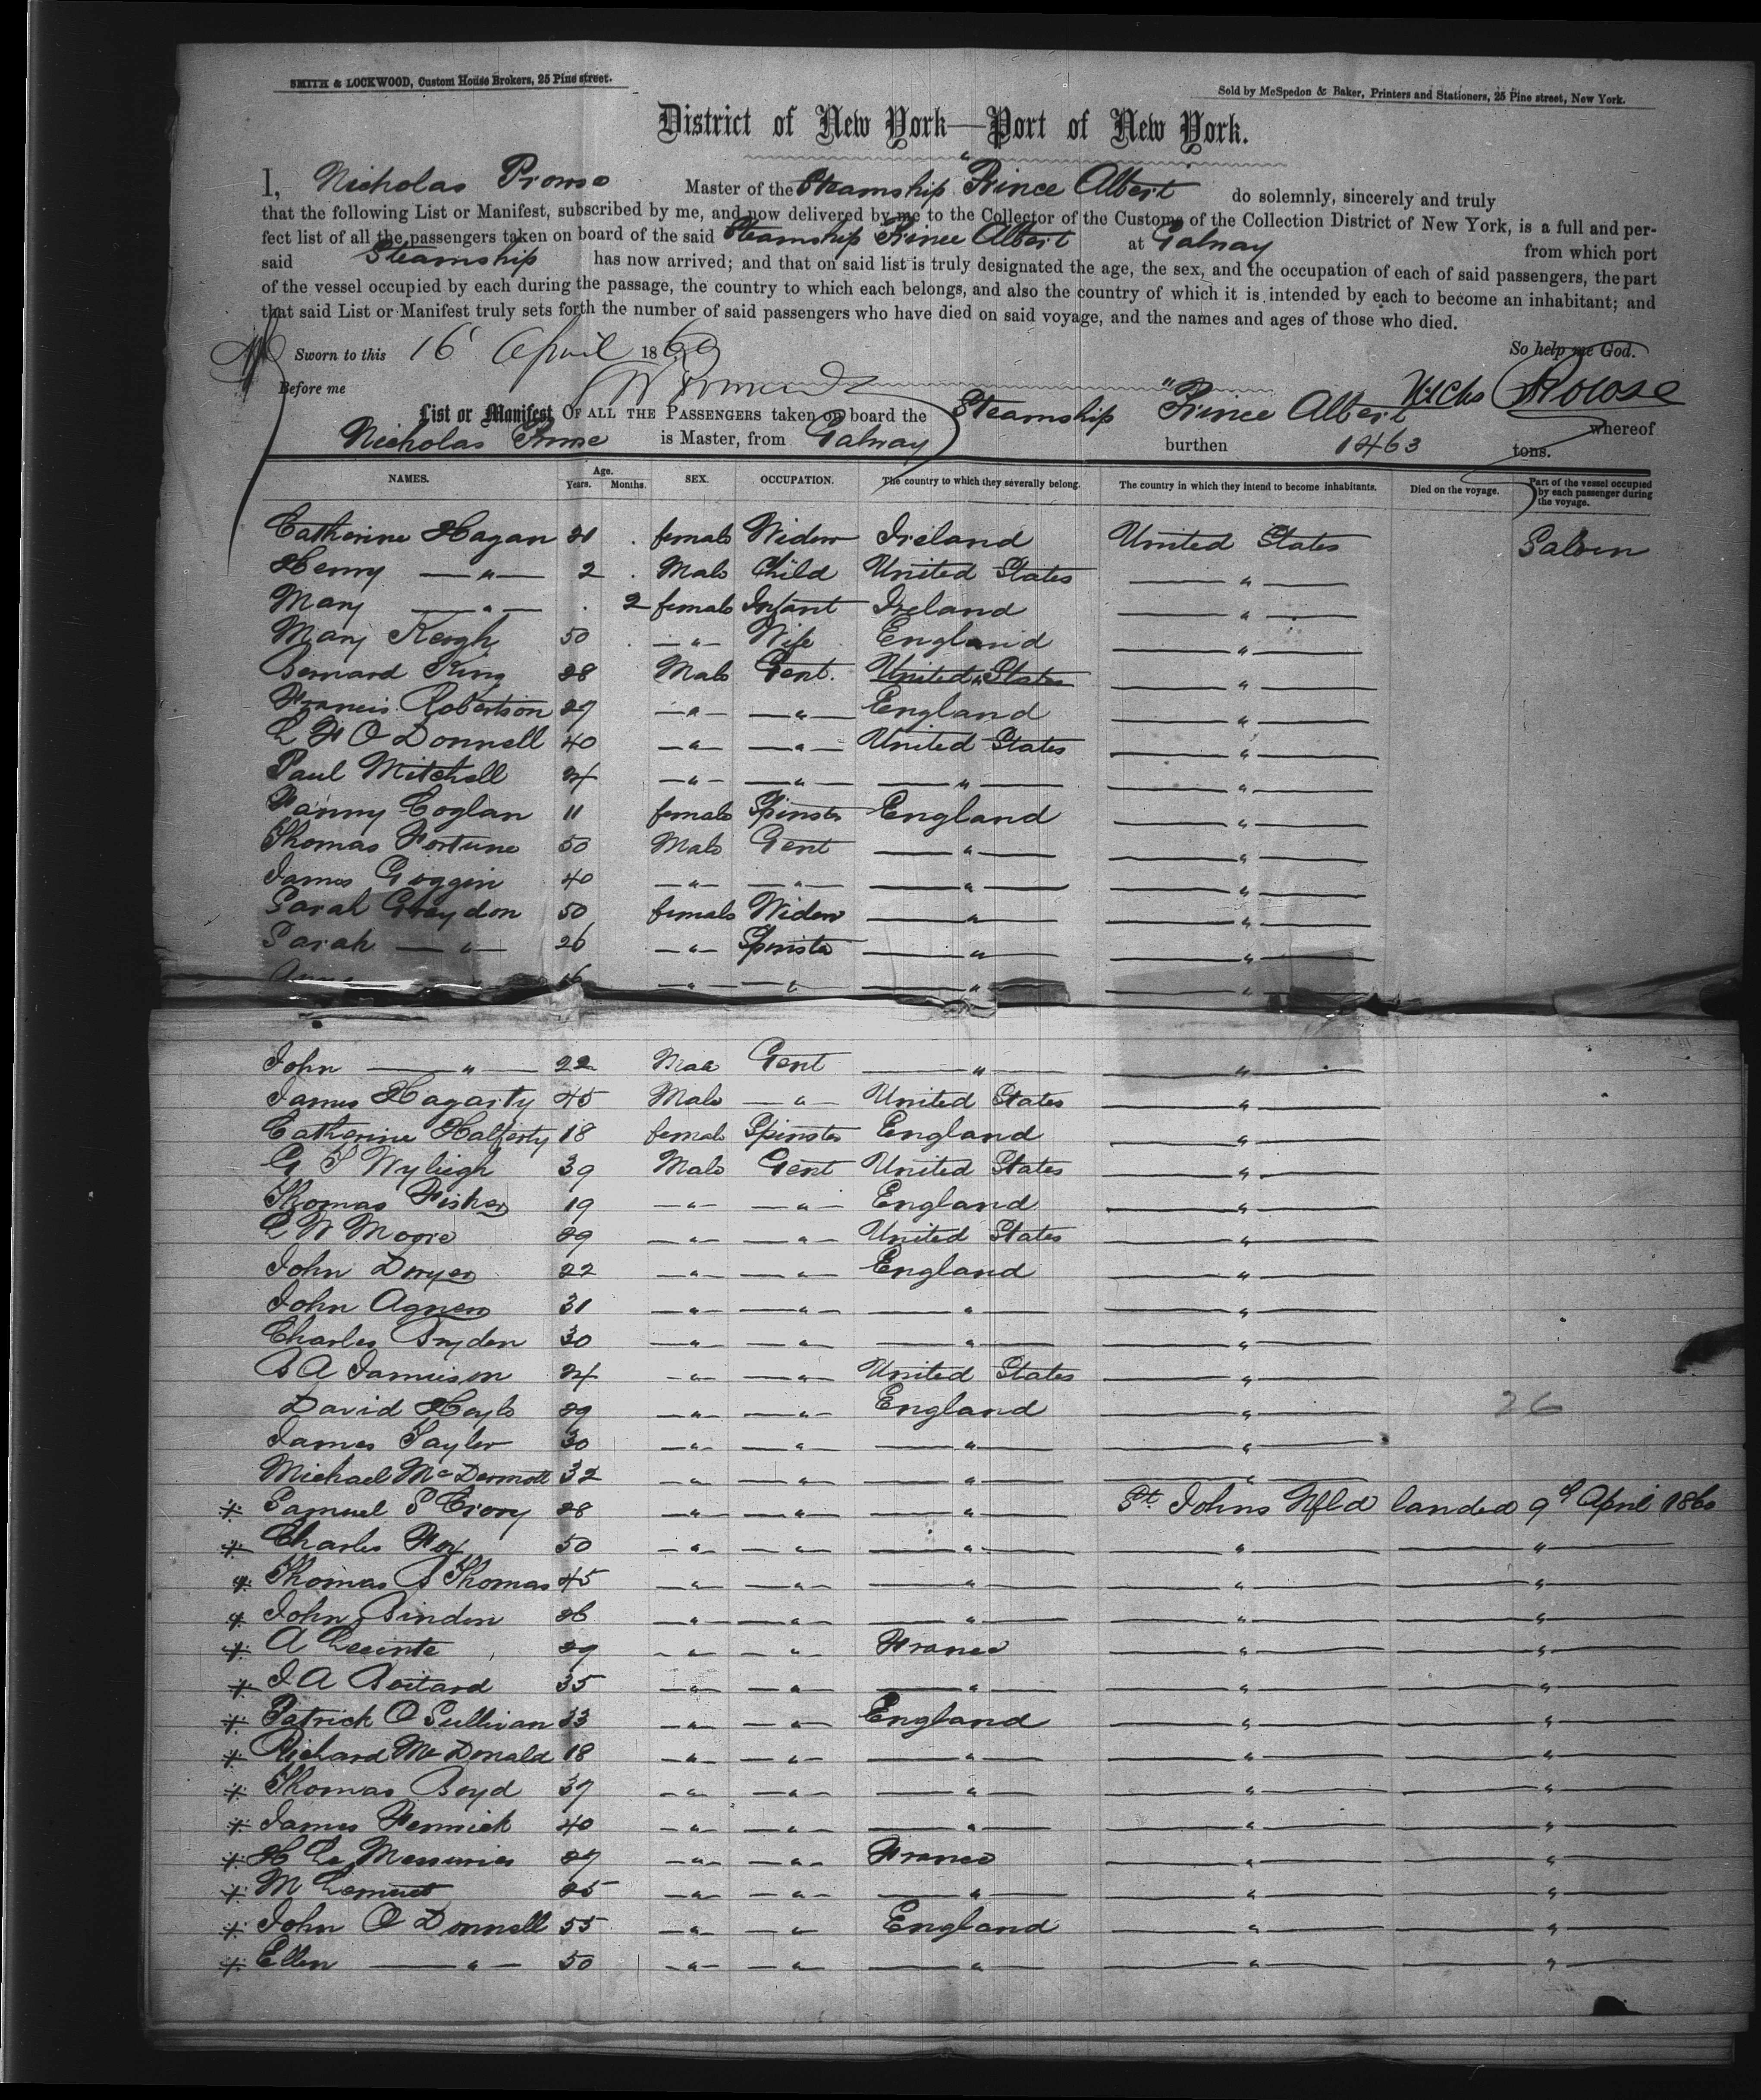 SMITH & LOCKWOOD, Custom House Brokers, 25 Pine street.
Sold by McSpedon & Baker, Printers and Stationers, 25 Pine street, New York.
District of New York—Port of New York.
I, Nicholas Prowse Master of the Steamship "Prince Albert" do solemnly, sincerely and truly
that the following List or Manifest, subscribed by me, and now delivered by me to the Collector of the Customs of the Collection District of New York, is a full and per-
fect list of all the passengers taken on board of the said Steamship Prince Albert at Galway from which port
said Steamship has now arrived; and that on said list is truly designated the age, the sex, and the occupation of each of said passengers, the part
of the vessel occupied by each during the passage, the country to which each belongs, and also the country of which it is intended by each to become an inhabitant; and
that said List or Manifest truly sets forth the number of said passengers who have died on said voyage, and the names and ages of those who died.
Sworn to this 16 April 1860 So help me God.
Before me Nichs Prowse
List or Manifest OF ALL THE PASSENGERS taken on board the Steamship "Prince Albert whereof
Nicholas Prowse is Master, from Galway burthen 1463 tons.
NAMES. Age. Years. Months. SEX. OCCUPATION. The country to which they severally belong. The country in which they intend to become inhabitants. Died on the voyage. Part of the vessel occupied by each passenger during the voyage.
Catherine Hagan 21 . female Widow Ireland United States Saloon
Henry — " — 2 . Male Child United States — " —
Mary — " — . 2 female Infant Ireland — " —
Mary Keogh 50 . — " — Wife England — " —
Bernard King 28 Male Gent. United States — " —
Francis Robertson 29 — " — — " — England — " —
L F O Donnell 40 — " — — " — United States — " —
Paul Mitchell 24 — " — — " — — " — — " —
Fanny Coglan 11 female Spinster England — " —
Thomas Fortune 50 Male Gent — " — — " —
James Goggin 40 — " — — " — — " — — " —
Sarah Graydon 50 female Widow — " — — " —
Sarah — " — 26 — " — Spinster — " — — " —
Anne 16 — " — — " — — " — — " —
John — " — 22 Male Gent — " — — " —
James Hagarty 45 Male — " — United States — " —
Catherine Halferty 18 female Spinster England — " —
G S Wyleigh 39 Male Gent United States — " —
Thomas Fisher 19 — " — — " — England — " —
L W Moore 29 — " — — " — United States — " —
John Dwyer 22 — " — — " — England — " —
John Agnew 31 — " — — " — — " — — " —
Charles Bryden 30 — " — — " — — " — — " —
B A Jamieson 24 — " — — " — United States — " —
David Hoyle 29 — " — — " — England — " — 26
James Taylor 30 — " — — " — — " — — " —
Michael McDermott 32 — " — — " — — " — — " —
Samuel S Crory 28 — " — — " — — " — St Johns Nfld landed 9th April 1860
Charles Fox 50 — " — — " — — " — — " — — " —
Thomas B Thomas 45 — " — — " — — " — — " — — " —
John Bindon 26 — " — — " — — " — — " — — " —
A Lecinte 29 — " — " France — " — — " —
J A Boitard 35 — " — — " — — " — — " — — " —
Patrick O Sullivan 33 — " — — " — England — " — — " —
Richard McDonald 18 — " — — " — — " — — " — — " —
Thomas Boyd 37 — " — — " — — " — — " — — " —
James Fennick 40 — " — — " — — " — — " — — " —
H Le Messurier 27 — " — — " — France — " — — " —
M 25 — " — — " — — " — — " — — " —
John O Donnell 55 — " — — " — England — " — — " —
Ellen — " — 50 — " — — " — — " — — " — — " —